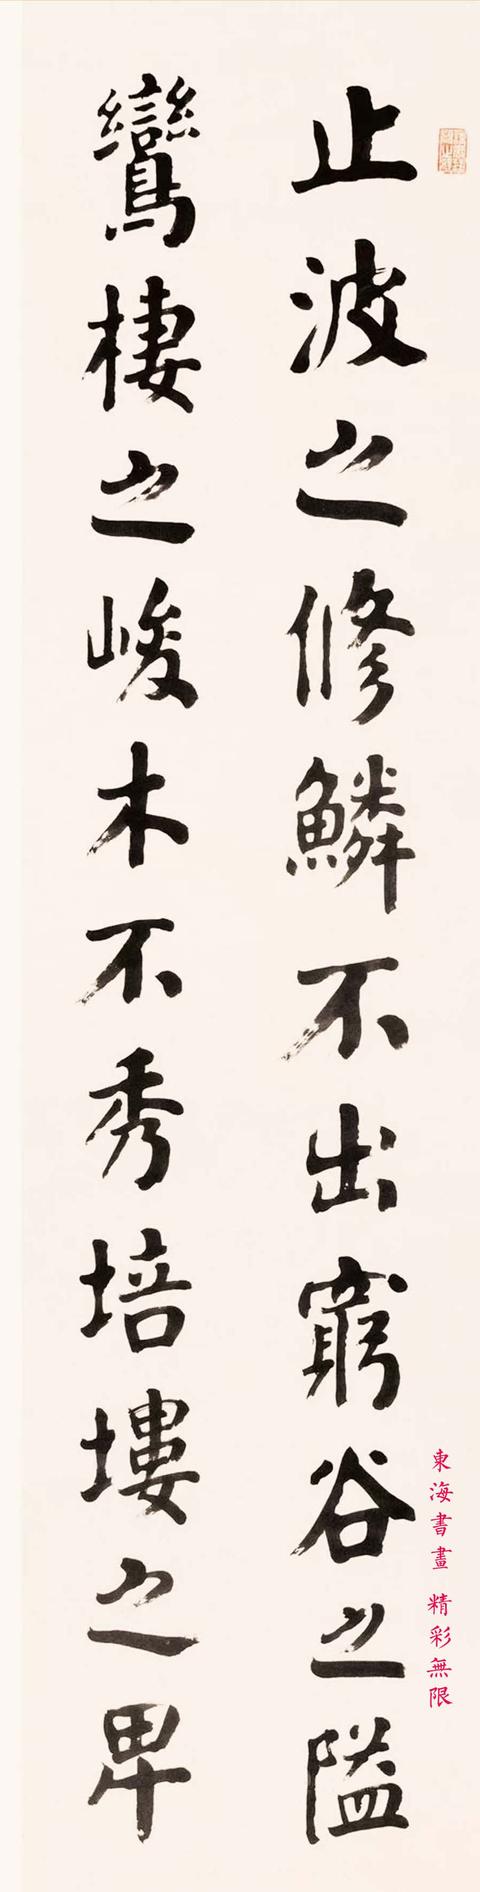 止波之修鱗不出窮谷之隘
鸞棲之峻木不秀培塿之卑
東海書畫 精彩無限